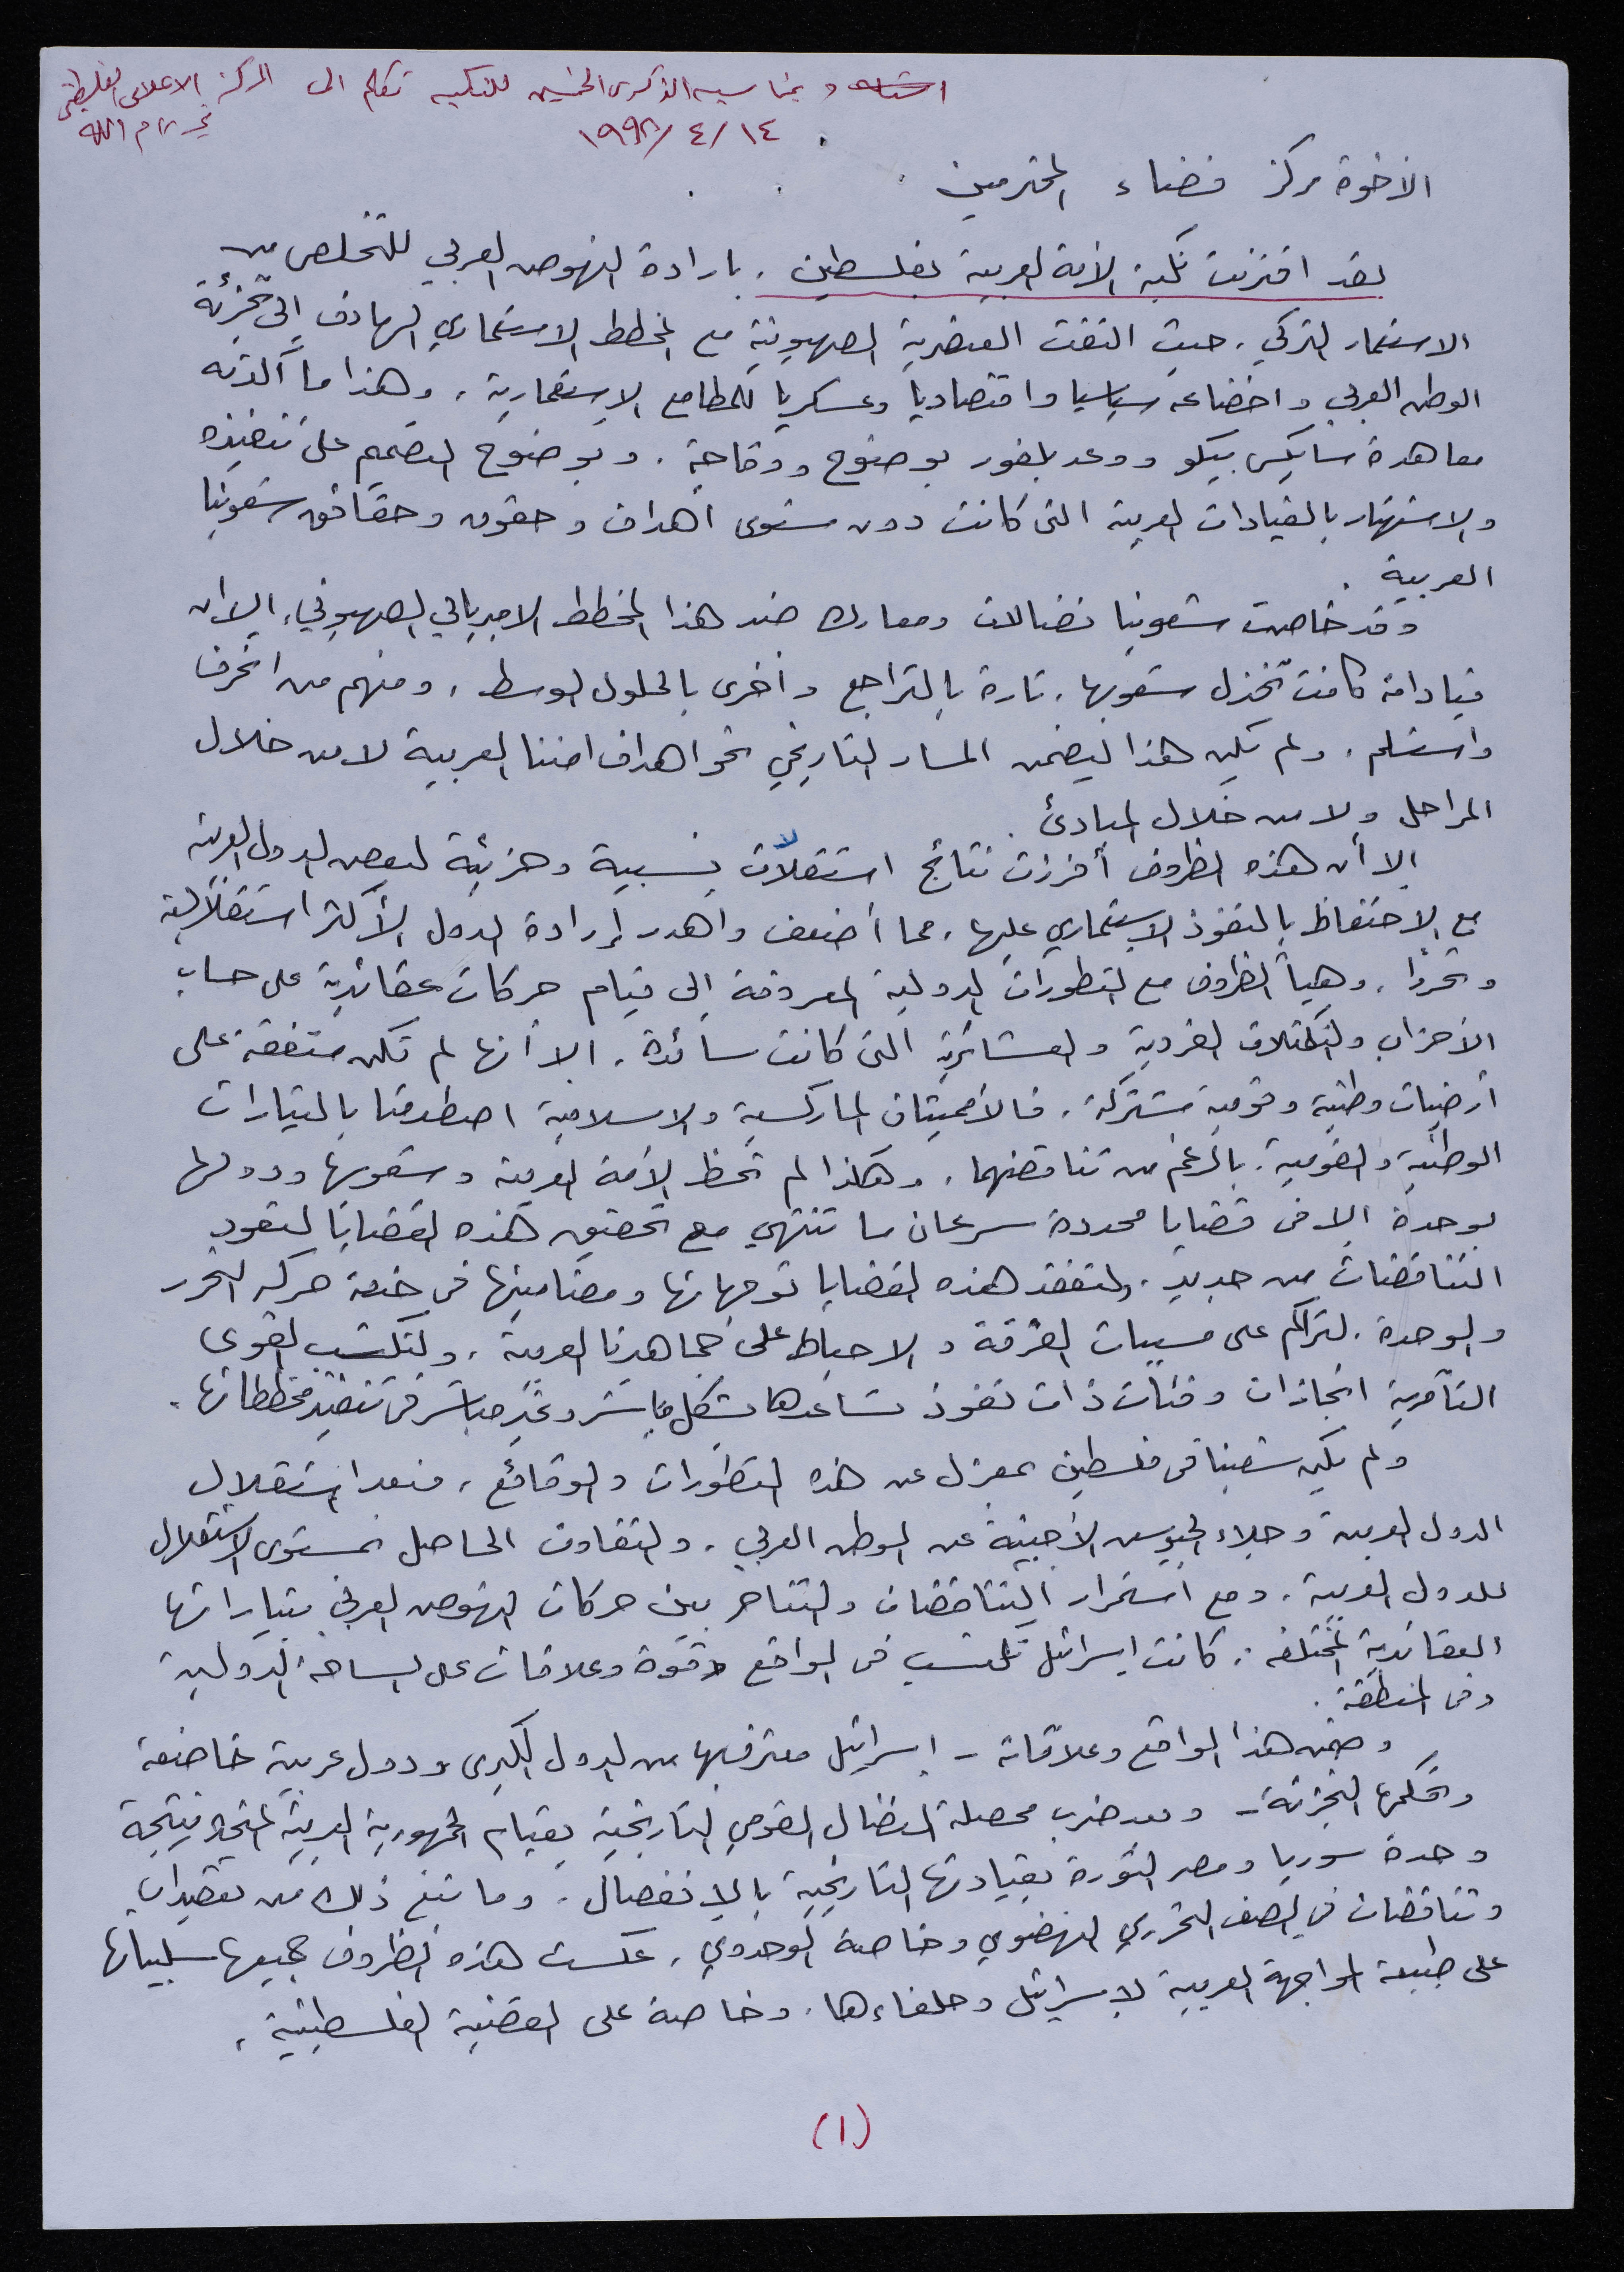 وبمناسبة الذكرى الخمسين للنكبة تقدم الى المركز الاعلامي الفلسطيني
١٩٩٨/٤/١٤
رام الله
الاخوة مركز فضاء المحترمين
لقد اقترنت نكبة الأمة العربية بفلسطين، بارادة النهوض العربي للتخلص من
الاستعمار التركي، حيث التقت العنصرية الصهيونية مع المخطط الاستعماري الهادف إلى تجزئة
الوطن العربي واخضاعه سياسيا واقتصاديا وعسكريا للمطامع الاستعمارية، وهذا ما أكدته
معاهدة سايكس بيكو ووعد بلفور بوضوح ووقاحة. وبوضوح التصميم على تنفيذه
والاستهتار بالقيادات العربية التي كانت دون مستوى أهداف وحقوق وحقائق شعوبنا
العربية.
وقد خاضت شعوبنا نضالات ومعارك ضد هذا المخطط الامبريالي الصهيوني، إلا ان
قياداته كانت تخذل شعوبها، تارة بالتراجع وأخرى بالحلول الوسط، ومنهم من انحرف
واستسلم، ولم يكن هذا ليضمن المسار التاريخي نحو اهداف امتنا العربية لا من خلال
المراحل ولا من خلال المبادئ.
إلا أن هذه الظروف أفرزت نتائج استقلالات نسبية وجزئية لبعض الدول العربية
مع الاحتفاظ بالنفوذ الاستعماري عليها، مما أضعف واهدر إرادة الدول الأكثر استقلالية
وتحررا، وهيأ الظروف مع التطورات الدولية المعروفة إلى قيام حركات عقائدية على حساب
الأحزاب والتكتلات الفردية والعشائرية التي كانت سائدة، إلا أنها لم تكن متفقة على
أرضيات وطنية وقومية مشتركة، فالأمميتان الماركسية والاسلامية اصطدمتا بالتيارات
الوطنية والقومية، بالرغم من تناقضهما، وهكذا لم تحظ الأمة العربية وشعوبها ودولها
بوحدة إلا في قضايا محددة سرعان ما تنتهي مع تحقيق هذه القضايا لتعود
التناقضات من جديد، ولتفقد هذه القضايا توجهاتها ومضامينها في خدمة حركة التحرر
والوحدة، لتراكم على مسببات الفرقة والاحباط على جماهيرنا العربية، ولتكتسب القوى
التآمرية انجازات وفئات ذات نفوذ تساعدها بشكل مباشر وغير مباشر في تنفيذ مخططاتها.
ولم يكن شعبنا في فلسطين بمعزل عن هذه التطورات والوقائع، فبعد استقلال
الدول العربية وجلاء الجيوش الأجنبية عن الوطن العربي، والتفاوت الحاصل بمستوى الاستقلال
للدول العربية، ومع استمرار التناقضات والتناحر بين حركات النهوض العربي بتياراتها
العقائدية المختلفة، كانت إسرائيل تكتسب في الواقع قوة وعلاقات على الساحة الدولية
وفي المنطقة.
وضمن هذا الواقع وعلاقاته - إسرائيل معترف بها من الدول الكبرى ودول عربية خاضعة
وتحكمها التجزئة - وبعد ضرب محصلة النضال القومي التاريخية بقيام الجمهورية العربية المتحدة نتيجة
وحدة سوريا ومصر الثورة بقيادتها التاريخية بالانفصال، وما نتج ذلك من تعقيدات
وتناقضات في الصف التحرري النهضوي وخاصة الوحدوي، عكست هذه الظروف جميعها سلبياتها
على طبيعة المواجهة العربية لإسرائيل وحلفاءها، وخاصة على القضية الفلسطينية.
(١)